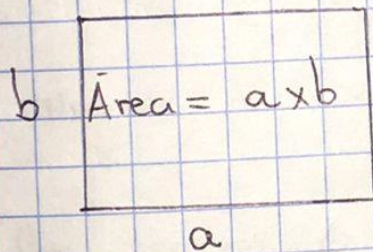 b Área = a x b
a